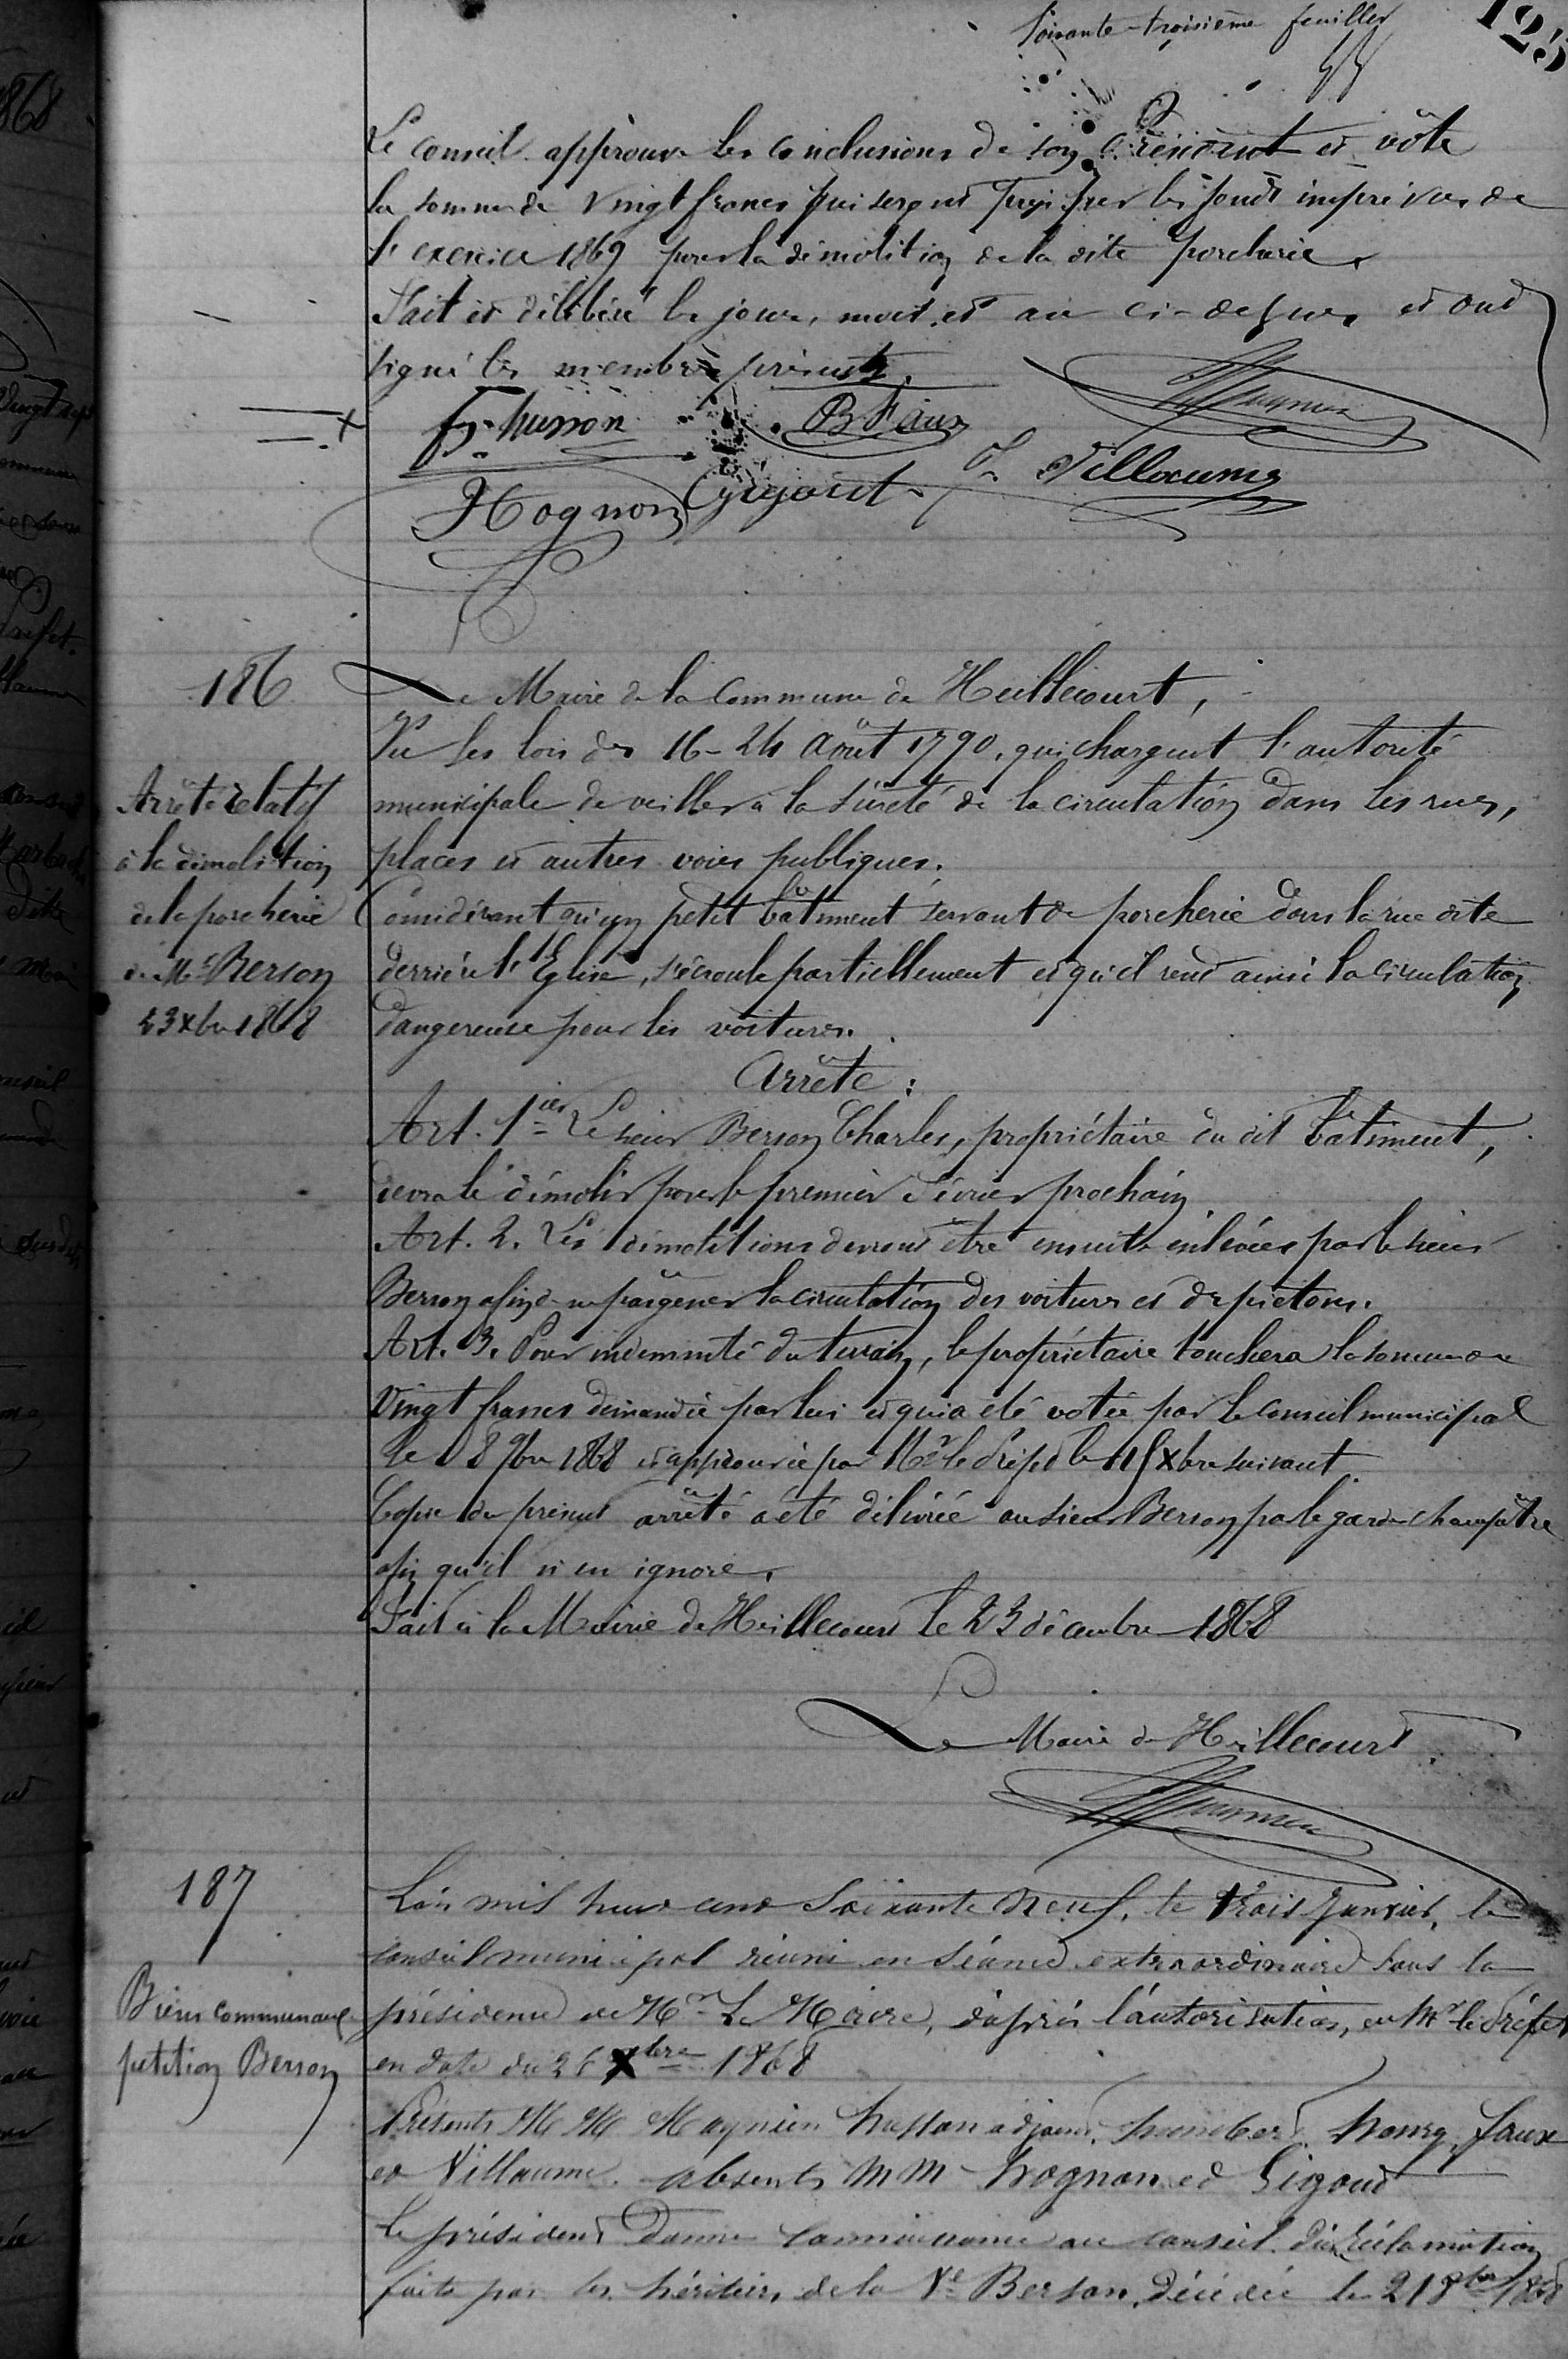 Soixante-troisième feuillet
125
Le Conseil approuve les conclusions de son Président et vote
la somme de Vingt francs qui seront pris sur les fonds imprévus de
l'exercice 1869 pour la démolition de la dite porcherie.
Fait et délibéré les jour, mois et an ci-dessus et ont
signé les membres présents.
Husson B Faux
Hognon Gigout J Villaume
186
Arrêté relatif
à la démolition
de la porcherie
de Mr Berson
23 xbre 1868
Le Maire de la Commune de Heillecourt,
Vu les lois des 16-24 Août 1790, qui chargent l'autorité
municipale de veiller à la sûreté de la circulation dans les rues,
places et autres voies publiques.
Considérant qu'un petit bâtiment servant de porcherie dans la rue dite
derrière l'Eglise, s'écroule partiellement et qu'il rend ainsi la circulation
dangereuse pour les voitures.
Arrête :
Art. 1ier Le sieur Berson Charles, propriétaire du dit bâtiment,
devra le démolir pour le premier Février prochain.
Art. 2. Les démolitions devront être ensuite enlevées par le sieur
Berson afin de ne pas gêner la circulation des voitures et des piétons.
Art. 3. Pour indemnité du terrain, le propriétaire touchera la somme de
Vingt francs demandée par lui et qui a été votée par le Conseil municipal
le 8 9bre 1868 et approuvée par Mr le Préfet le 15 xbre suivant.
Copie du présent arrêté a été délivrée au sieur Berson par le garde champêtre
afin qu'il n'en ignore.
Fait à la Mairie de Heillecourt le 23 décembre 1868
Le Maire de Heillecourt
187
Biens communaux
petition Berson
L'an mil huit cent soixante neuf, le trois Janvier, le
conseil municipal réuni en séance extraordinaire sous la
présidence de Mr Le Maire, d'après l'autorisation de Mr le Préfet
en date du 26 Xbre 1868
Présents MM Magnien husson adjoint, humbert, houry, faux
et Villaume. absents MM hognon et Gigout
le président donne connaissance au conseil d'une réclamation
faite par les héritiers de la Ve Berson, décédée le 21 8bre 1868